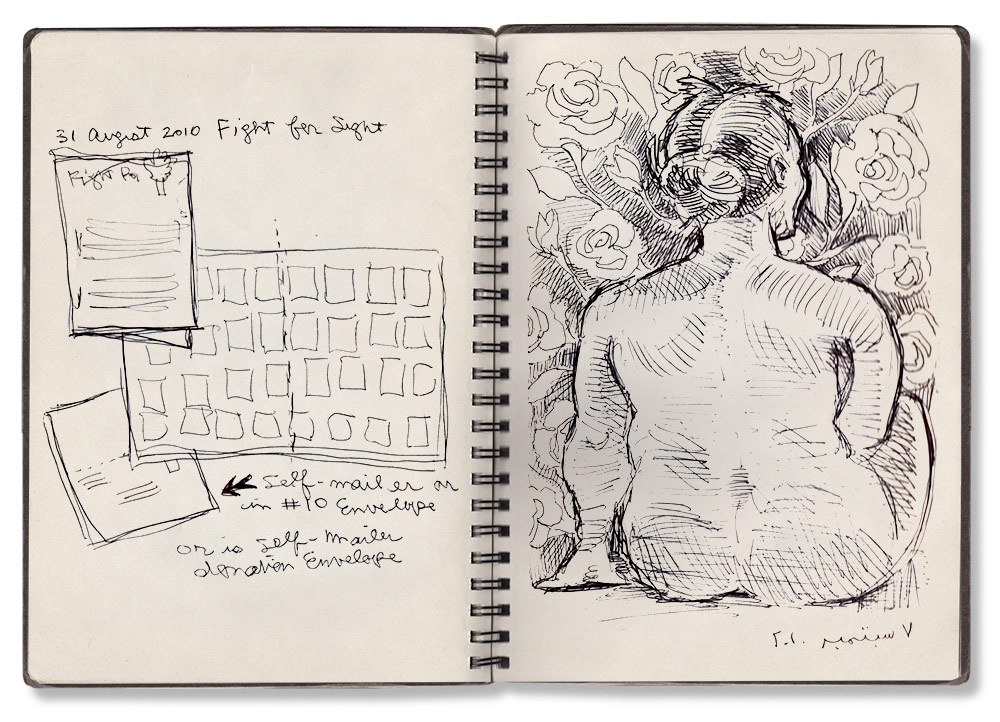 31 August 2010 Fight for Sight
Fight For
Self-mailer or
in #10 Envelope
or is Self-Mailer
donation Envelope
٧ سبتمبر ٢٠١٠